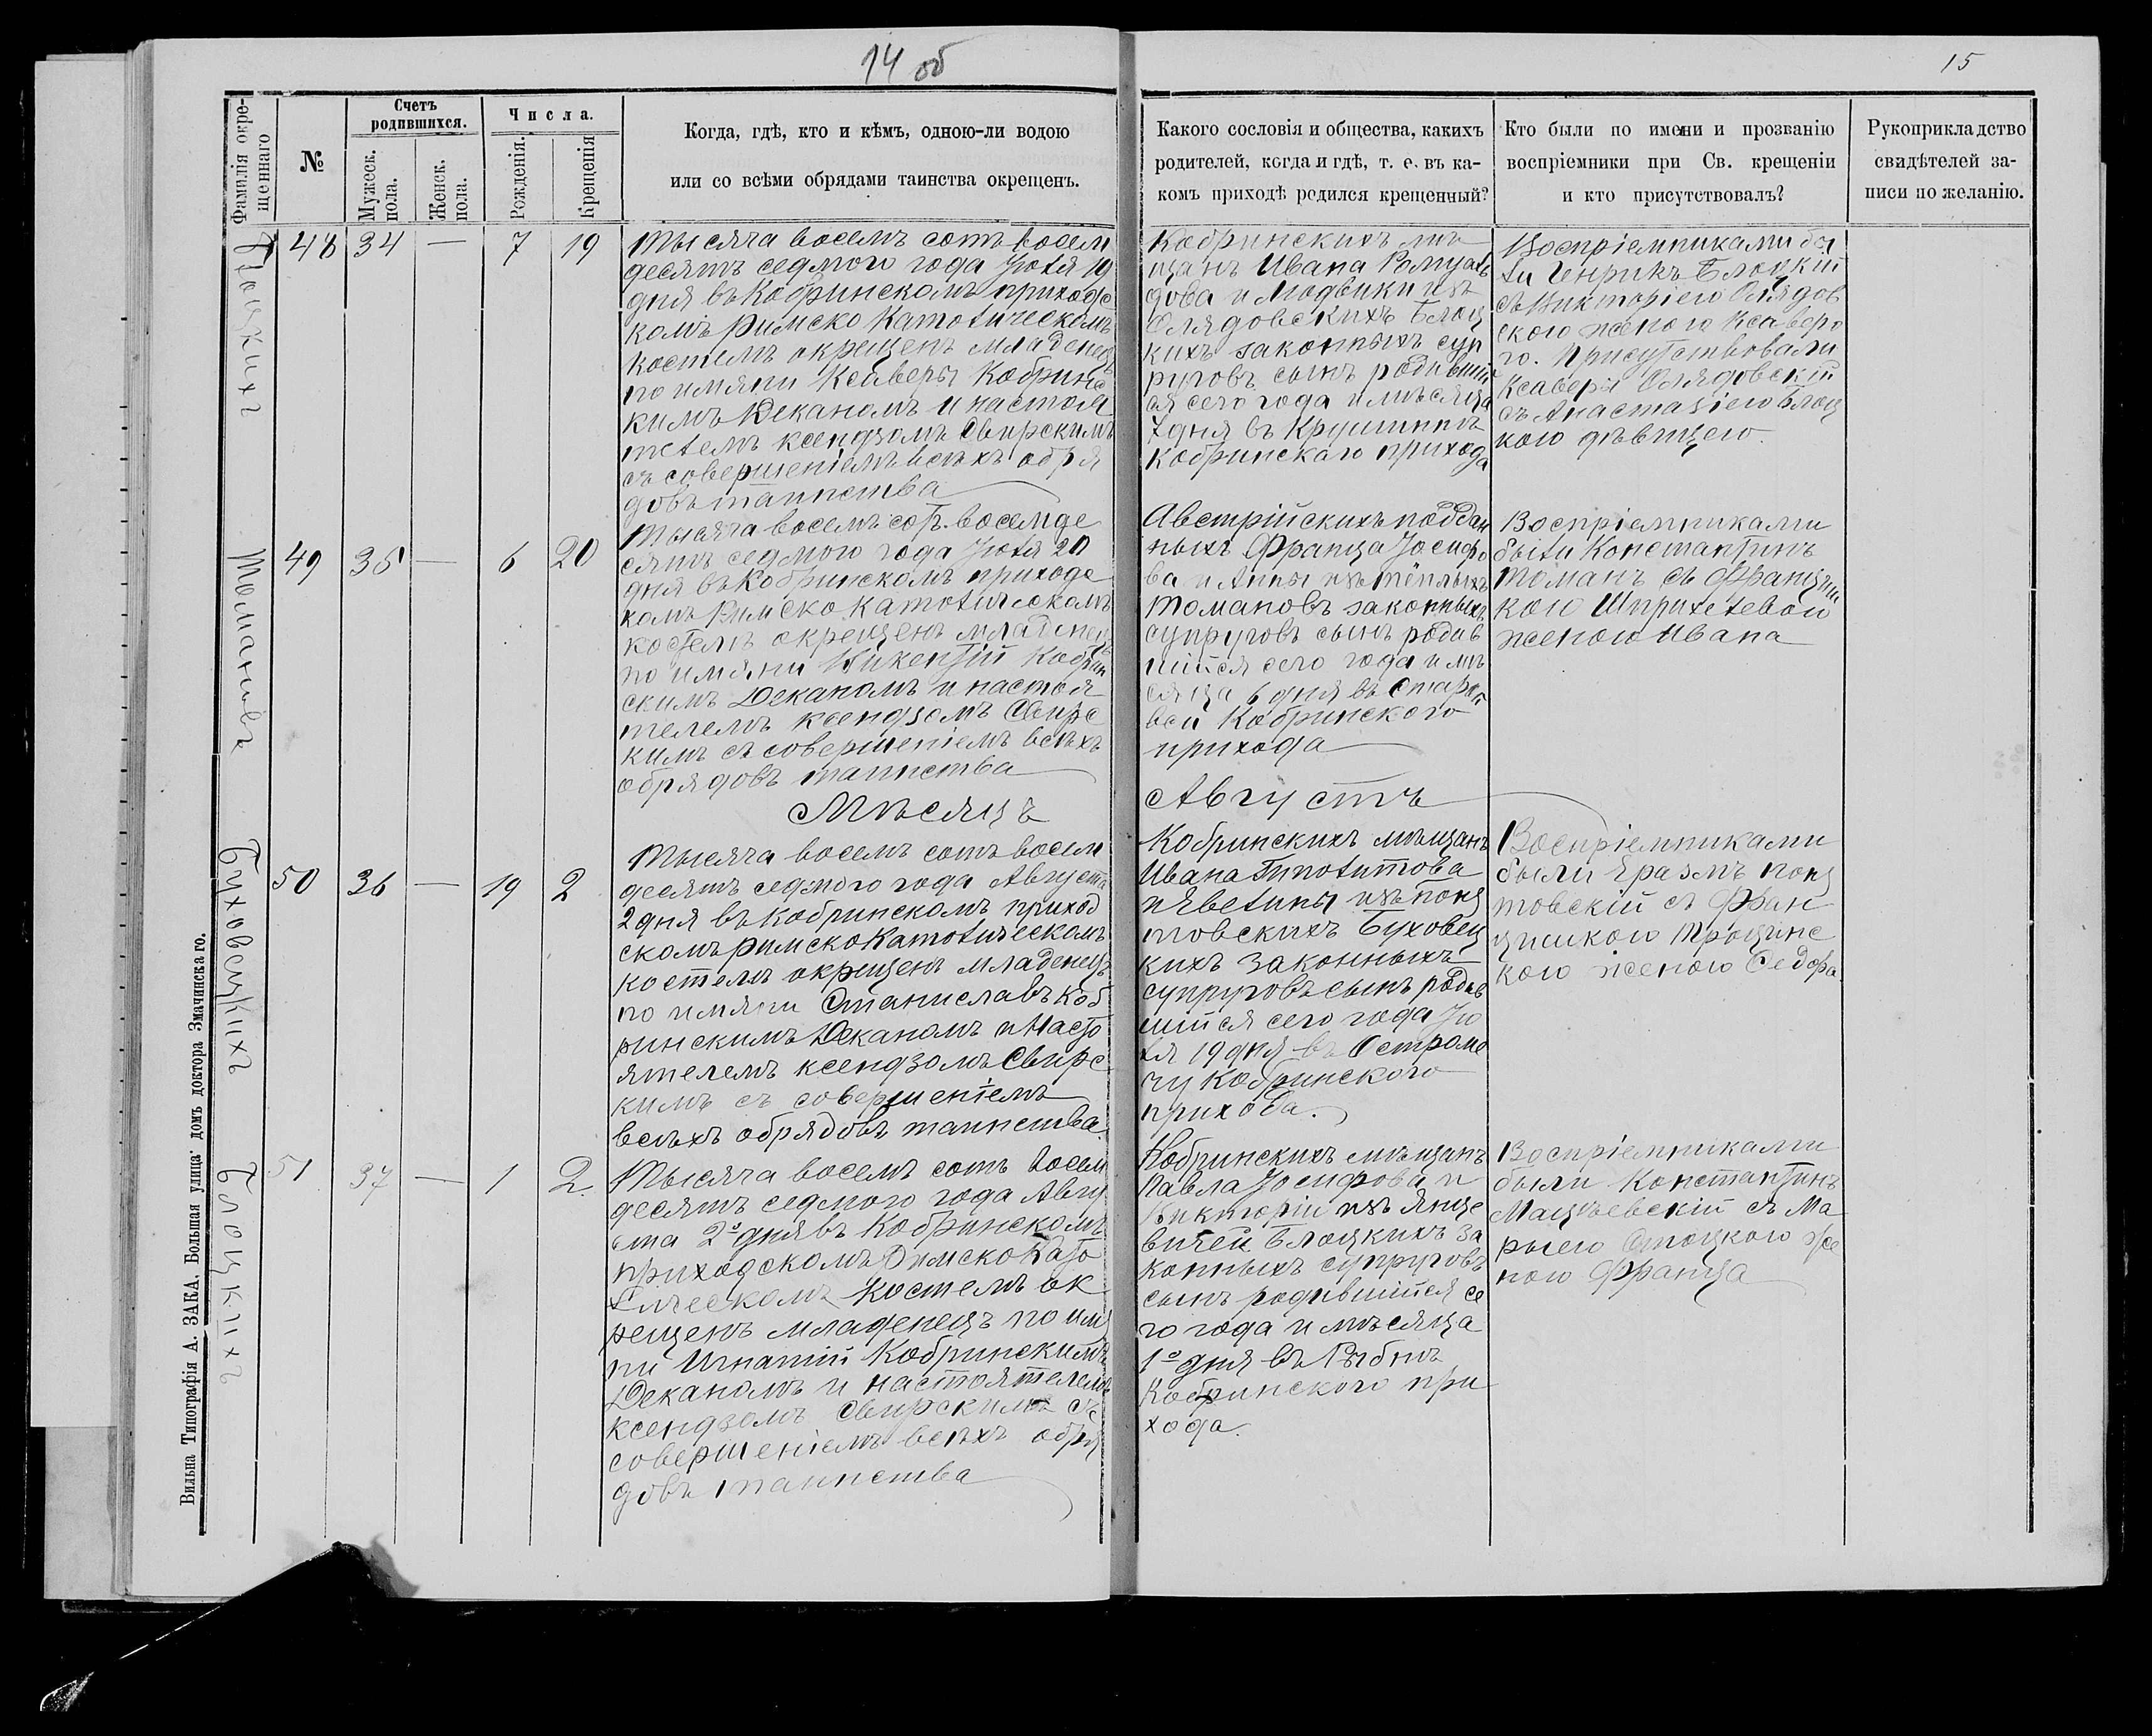 14 об
15
Фамилія окре-
щеннаго
№
Счетъ
родившихся.
Мужеск.
пола.
Женск.
пола.
Числа.
Рожденія.
Крещенія
Когда, гдѣ, кто и кѣмъ, одною-ли водою
или со всѣми обрядами таинства окрещенъ.
Какого сословія и общества, какихъ
родителей, когда и гдѣ, т. е. въ ка-
комъ приходѣ родился крещенный?
Кто были по имени и прозванію
воспріемники при Св. крещеніи
и кто присутствовалъ?
Рукоприкладство
свидѣтелей за-
писи по желанію.
Блоцкихъ
48 34 — 7 19
Тысяча восемъ сотъ восем
десятъ седмого года Июля 19
дня въ Кобринскомъ приходс
комъ Римско Католическомъ
костелѣ окрещенъ младенецъ
по имяни Ксаверы Кобринс
кимъ Деканомъ и настоя
телемъ ксендзомъ Свирскимъ
съ совершеніемъ всѣхъ обря
довъ таинства
Кобринскихъ мѣ
щанъ Ивана Ромуаль
дова и Людвики изъ
Олядовскихъ Блоц
кихъ законныхъ суп
руговъ сынъ родивший
ся сего года и мѣсяца
7 дня въ Крушинѣ
Кобринскаго прихода
Воспріемниками бы
ли Генрикъ Блоцкій
съ Викторіею Олядов
ского женою Ксаверо
го. Присутствовали
Ксаверій Олядовскій
съ Анастазіею Блоц
кою дѣвицею.
Томановъ
49 35 — 6 20
Тысяча восемъ сотъ восемде
сятъ седмого года Июля 20
дня въ Кобринскомъ приходс
комъ Римско Католическомъ
костелѣ окрещенъ младенецъ
по имяни Викентій Кобрин
скимъ Деканомъ и настоя
телемъ ксендзомъ Свирс
кимъ съ совершеніемъ всѣхъ
обрядовъ таинства
Австрійскихъ поддан
ныхъ Франца Іосифо
ва и Анны изъ Тёплыхъ
Томановъ законныхъ
супруговъ сынъ родив
шійся сего года и мѣ
сяца 6 дня въ
Кобринского
прихода
Воспріемниками
были Константинъ
Томанъ съ Францыш
кою Шприхелевою
женою Ивана
Мѣсяцъ
Августъ
Буховецкихъ
50 36 — 19 2
Тысяча восемъ сотъ восем
десятъ седмого года Августа
2 дня въ Кобринскомъ приход
скомъ Римско Католическомъ
костелѣ окрещенъ младенецъ
по имяни Станиславъ Коб
ринскимъ Деканомъ и Насто
ятелемъ ксендзомъ Свирс
кимъ съ совершеніемъ
всѣхъ обрядовъ таинства.
Кобринскихъ мѣщанъ
Ивана Гиполитова
и Эвелины изъ Понц
товскихъ Буховец
кихъ законныхъ
супруговъ сынъ родив
шійся сего года Ию
ля 19 дня въ Остроме
чу Кобринского
прихода.
Воспріемниками
были Эразмъ Понц
товскій съ Фран
цишкою Троцинс
кою женою Федора.
Блоцкихъ
51 37 — 1 2.
Тысяча восемъ сотъ восем
десятъ седмого года Авгу
ста 2º дня въ Кобринскомъ
приходскомъ Римско Като
лическомъ костелѣ ок
рещенъ младенецъ по имя
ни Игнатій Кобринскимъ
Деканомъ и настоятелемъ
ксендзомъ Свирскимъ съ
совершеніемъ всѣхъ обря
довъ таинства
Кобринскихъ мѣщанъ
Павла Іосифова и
Викторіи изъ Янце
вичей Блоцкихъ за
конныхъ супруговъ
сынъ родившійся се
го года и мѣсяца
1º дня въ Рыбнѣ
Кобринского при
хода.
Воспріемниками
были Константинъ
Мацѣевскій съ Ма
рыею Стоцкою же
ною Франца
Вильна Типографія А. ЗАКА. Большая улица: домъ доктора Змачинскаго.